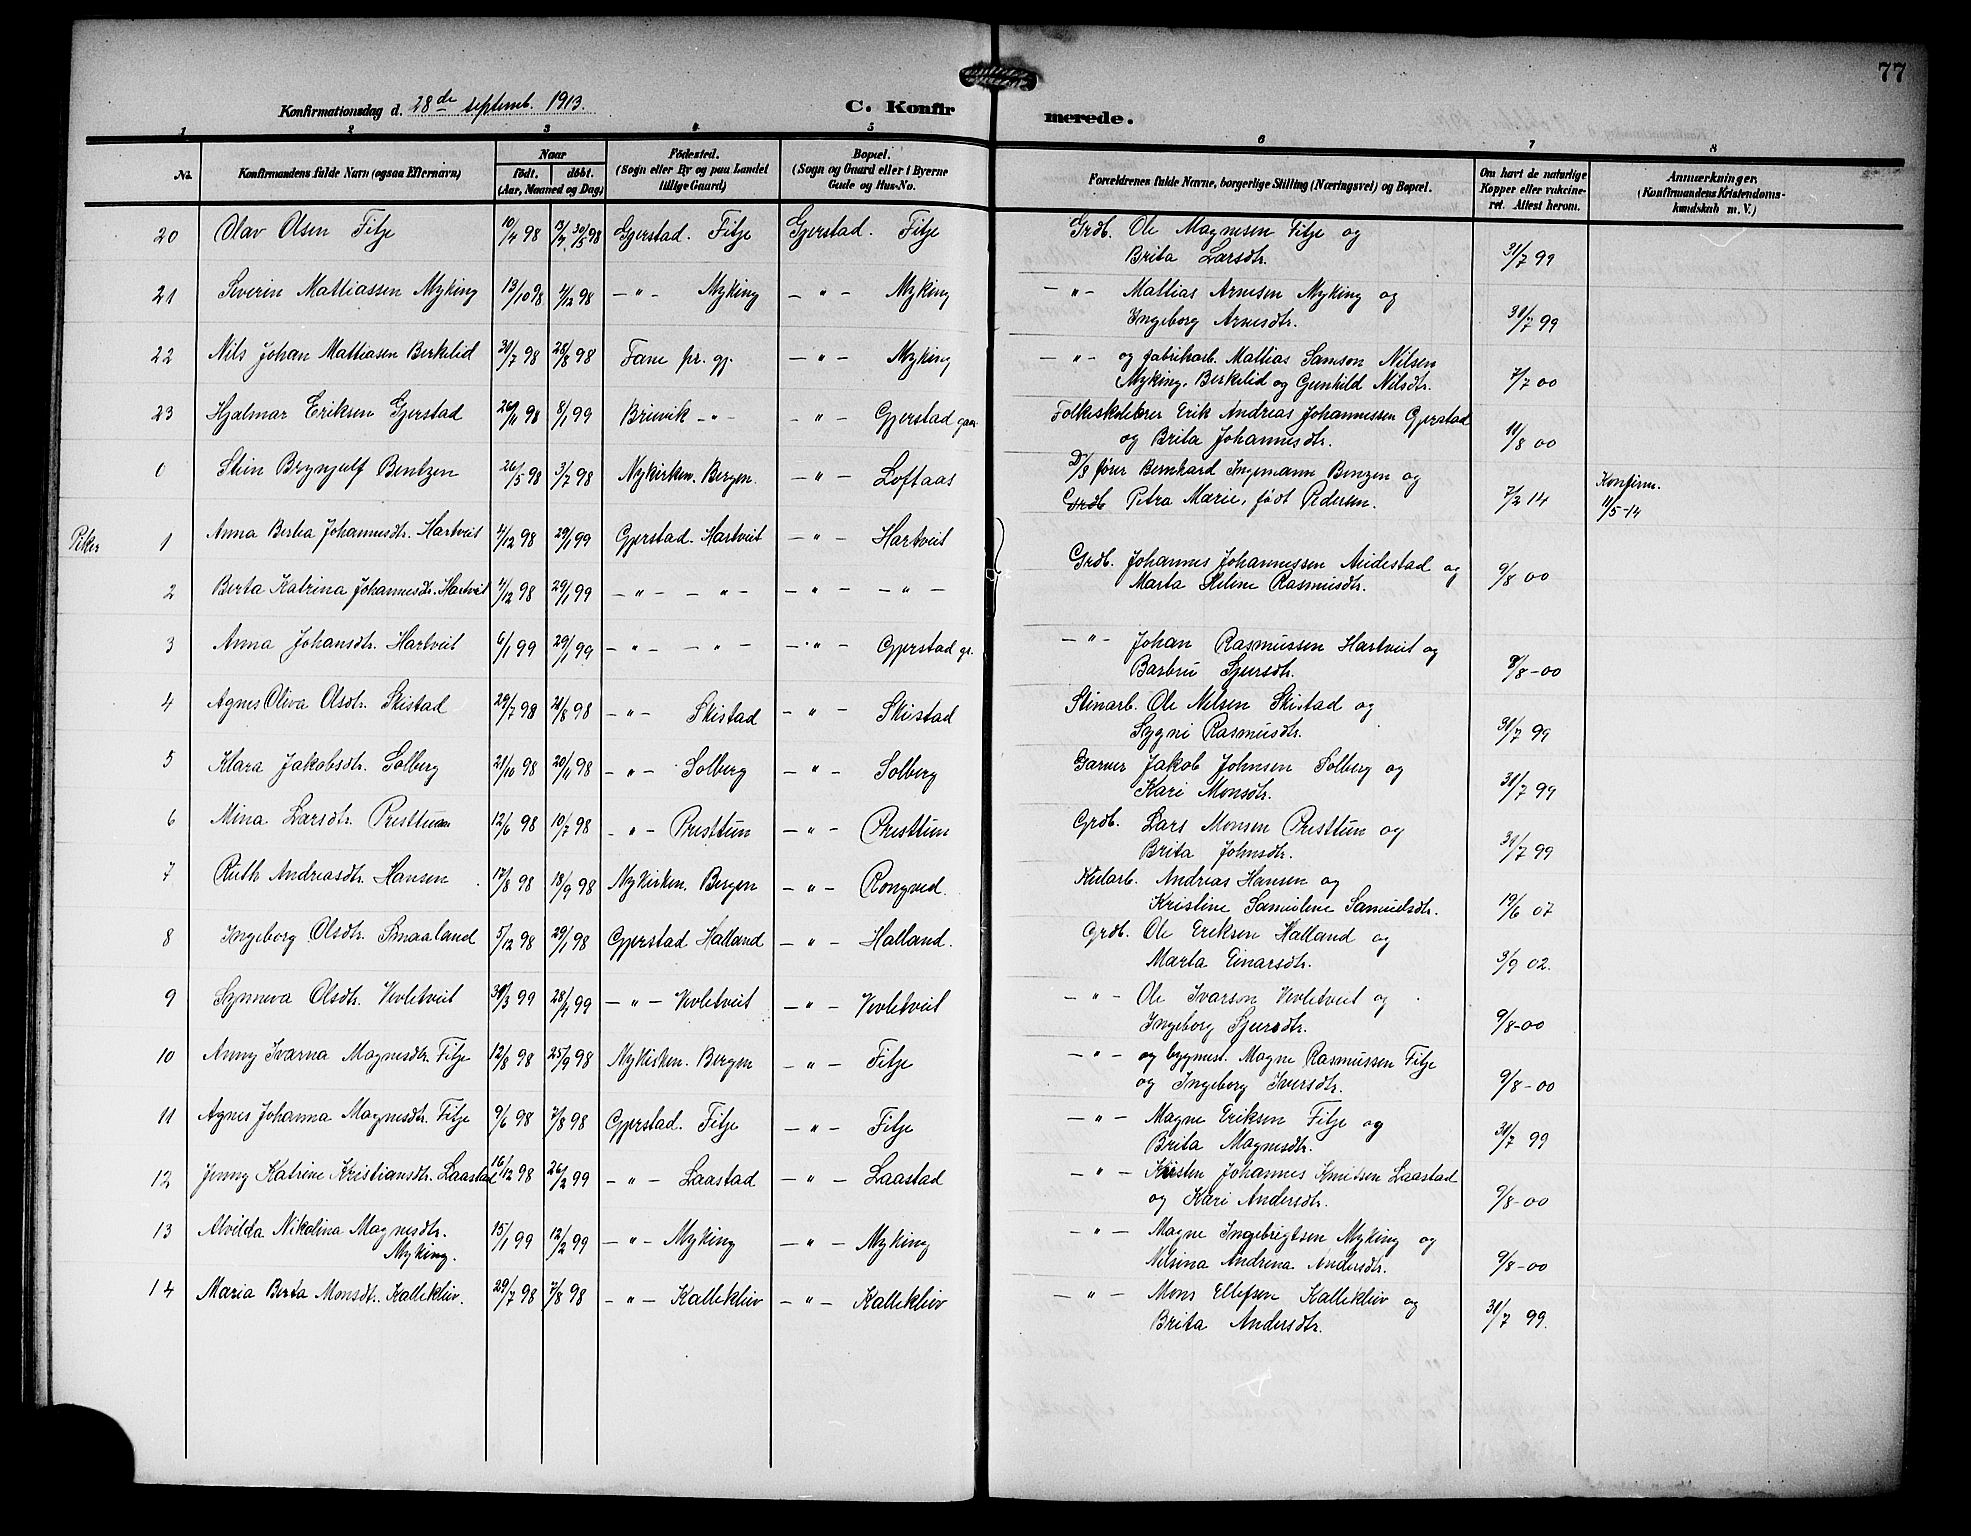 77
Konfirmationsdag d. 28de septemb. 1913.
C. Konfirmerede.
1 2 3 4 5 6 7 8
No. Konfirmandens fulde Navn (ogsaa Efternavn) Naar født. døbt. (Aar, Maaned og Dag) Fødested. (Sogn eller By og paa Landet tillige Gaard) Bopæl. (Sogn og Gaard eller i Byerne Gade og Hus-No. Forældrenes fulde Navne, borgerlige Stilling (Næringsvei) og Bopæl. Om havt de naturlige Kopper eller vakcineret. Attest herom. Anmærkninger, (Konfirmandens Kristendomskundskab m. V.)
20 Olav Olsen Fitje 10/4 98 30/5 98 Gjerstad. Fitje Gjerstad. Fitje Grdb. Ole Magnesen Fitje og
Brita Larsdtr. 31/7 99
21 Severin Mattiassen Myking 13/10 98 4/12 98 -"- Myking -"- Myking -"- Mattias Arnesen Myking og
Ingeborg Arnesdtr. 31/7 99
22 Nils Johan Mattiasen Birkelid 30/7 98 28/8 98 Fane pr. gj. -"- Myking -"- og fabrikarb. Mattias Samson Nilsen
Myking, Birkelid og Gunhild Nilsdtr. 7/7 00
23 Hjalmar Eriksen Gjerstad 26/11 98 8/1 99 Bruvik -"- -"- Gjerstad gaar Folkeskolelærer Erik Andreas Johannessen Gjerstad
og Brita Johannesdtr. 11/8 00
0 Stein Brynjulf Bentzen 26/5 98 3/7 98 Nykirken. Bergen. -"- Loftaas D/S fører Bernhard Ingemann Benzen og
Grdb Petra Marie, født Pedersen. 7/2 14 Konfirm. 11/5-14
Piker
1 Anna Berta Johannesdtr. Hartveit 4/12 98 29/1 99 Gjerstad. Hartveit -"- Hartveit
Grdb. Johannes Johannessen Midestad og
2 Berta Katrina Johannesdtr. Hartveit 4/12 98 29/1 99 -"- -"- -"- -"- Marta Helene Rasmusdtr. 9/8 00
3 Anna Johansdtr. Hartveit 6/1 99 29/1 99 -"- -"- -"- Gjerstad gr. -"- Johan Rasmussen Hartveit og
Barbru Sjursdtr. 8/8-00
4 Agnes Oliva Olsdtr. Skistad 29/7 98 21/8 98 -"- Skistad -"- Skistad Stinarb. Ole Nilsen Skistad og
Sygni Rasmusdtr. 31/7 99
5 Klara Jakobsdtr. Solberg 21/10 98 20/11 98 -"- Solberg -"- Solberg Garver Jakob Johnsen Solberg og
Kari Monsdtr. 31/7 99
6 Mina Larsdtr. Presttun 12/6 98 10/7 98 -"- Presttun -"- Presttun Grdb. Lars Monsen Presttun og
Brita Johnsdtr. 31/7 99
7 Ruth Andreasdtr. Hansen 17/8 98 18/9 98 Nykirken. Bergen -"- Rongved. Kularb. Andreas Hansen og
Kristine Samuline Samuelsdtr. 19/6 07
8 Ingeborg Olsdtr. Smaaland 5/12 98 29/1 98 Gjerstad Halland -"- Halland. Grdb. Ole Eriksen Halland og
Marta Einarsdtr. 3/9 02.
9 Synneva Olsdtr. Vevletveit 30/3 99 28/4 99 -"- Vevletveit -"- Vevletveit -"- Ole Ivarson Vevletveit og
Ingeborg Sjursdtr. 9/8-00
10 Anny Ivarna Magnesdtr. Fitje 12/8 98 25/9 98 Nykirken. Bergen -"- Fitje -"- og bygmest. Magne Rasmussen Fitje
og Ingeborg Iversdtr. 9/8-00
11 Agnes Johanna Magnesdtr. Fitje 9/6 98 7/8 98 Gjerstad. Fitje -"- Fitje -"- Magne Eriksen Fitje og
Brita Magnesdtr. 31/7 99
12 Jenny Katrine Kristiansdtr. Laastad 16/12 98 26/2 99 -"- Laastad -"- Laastad -"- Kristen Johannes Knudsen Laastad
og Kari Andersdtr. 9/8-00
13 Alvilda Nikolina Magnesdtr. Myking. 15/1 99 12/2 99 -"- Myking -"- Myking -"- Magne Ingebrigtsen Myking og
Nilsina Andrina Andersdtr. 9/8-00
14 Maria Berta Monsdtr. Kallekleiv. 29/7 98 7/8 98 -"- Kallekleiv -"- Kallekleiv -"- Mons Ellefsen Kallekleiv og
Brita Andersdtr. 31/7 99.